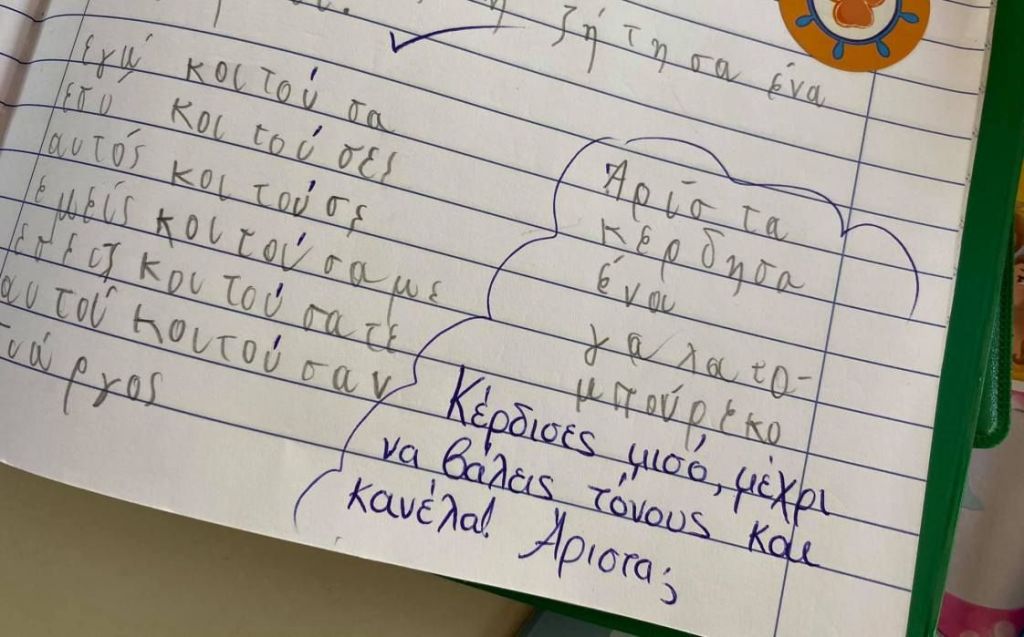 ζήτησα ένα
εγώ κοιτούσα
εσύ κοιτούσες
αυτός κοιτούσε
εμείς κοιτούσαμε
εσείς κοιτούσατε
αυτοί κοιτούσαν
πύργος
Άριστα
κέρδησα
ένα
γαλατο-
μπούρεκο
Κέρδισες μισό, μέχρι
να βάλεις τόνους και
κανέλα! Άριστα;